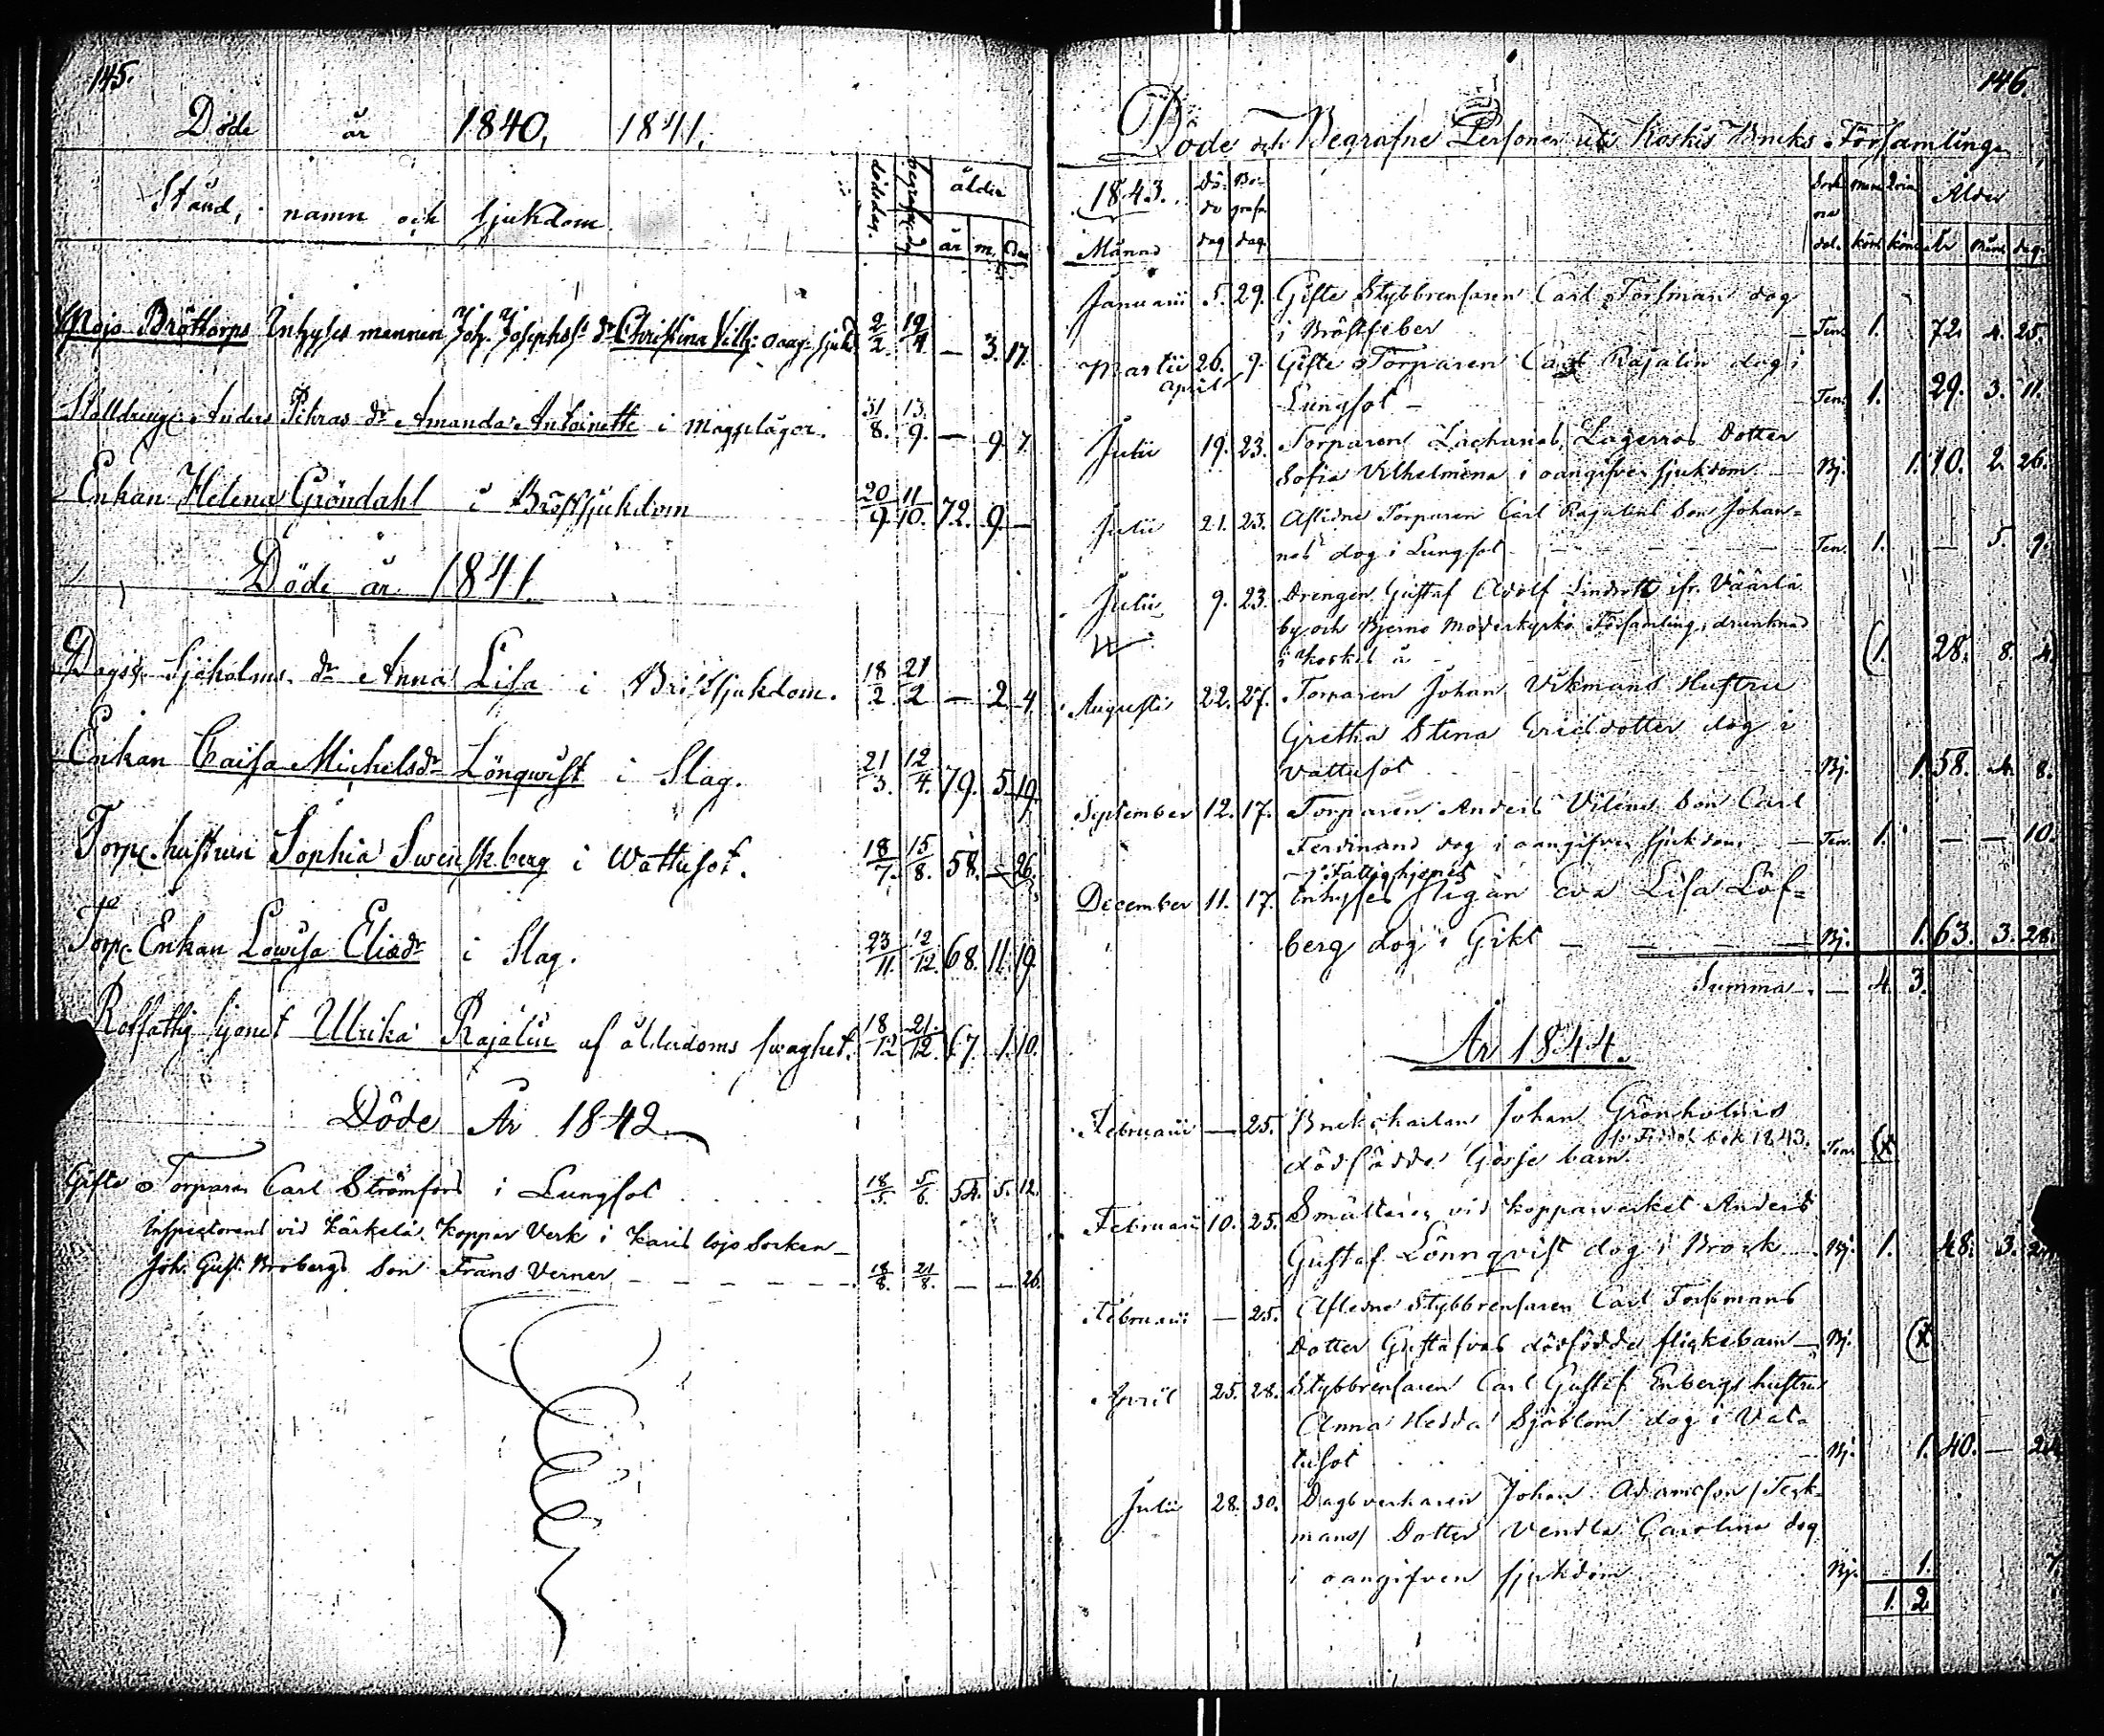 145.
Döde år 1840, 1841.
Stånd, namn och sjukdom dödsdag. begrafn.dag ålder
år m. dar
Mojo Bröttorps Inhyses mannen Joh. Josephss. dr Christina Vilh: oang. sjukd. 2/2. 19/4 — 3. 17.
Stalldreng. Anders Pihras dr Amanda Antoinette i magplågor. 31/8. 13/9. — 9. 7.
Enkan Helena Gröndahl i Bröstsjukdom 20/9 11/10. 72. 9 —
Döde år 1841.
Dagsk. Sjöholms dr Anna Lisa i Bröstsjukdom. 18/2. 21/2 — 2. 4.
Enkan Caisa Michelsdr Lönqwist i Slag. 21/3. 12/4. 79. 5. 19.
Torp. hustrun Sophia Swenskberg i Wattusot. 18/7. 15/8. 58. — 26.
Torp. Enkan Lowisa Eliædr i Slag. 23/11. 12/12. 68. 11. 19.
Rotfattig hjonet Ulrika Rajalin af ålderdoms swaghet. 18/12 21/12. 67. 1. 10.
Döde År 1842
Gifte Torparen Carl Strömfors i Lungsot 18/5. 5/6. 54. 5. 12.
Inspectorens vid Kärkelä Koppar Verk i Karis lojo Socken
Joh. Gust. Brobergs Son Frans Verner — 18/8. 21/8. — — 26.
146.
Döde och Begrafne Personer uti Koskis Bruks Församling
1843. Dö- Be- Sock Man Qvin Ålder
de grafn. ne
Månad dag dag. del. kön kön År Mån. dag.
Januarii 5. 29. Gifte Stybbrensaren Carl Forsman dog
i Bröstfeber — Ten. 1. 72. 4. 25.
Martii 26. 9. Gifte Torparen Carl Rajalin dog i
april
Lungsot — Ten. 1. 29. 3. 11.
Julii 19. 23. Torparen Zacharias Lagerros dotter
Sofia Vilhelmina i oangifven sjukdom — Bj. 1. 10. 2. 26.
Julii 21. 23. Aflidne Torparen Carl Rajalins Son Johan-
nes dog i Lungsot — Ten. 1. — 5. 9.
Julii 9. 23. Drengen Gustaf Adolf Lindroth ifr. Väärlä
by och Bjerno Moderkyrko Församling, drunknad
i Koskis å (1. 28. 8. 4.
Augusti 22. 27. Torparen Johan Vikmans Hustru
Gretha Stina Ericsdotter dog i
Vattusot — Bj. 1. 58. 4. 8.
September 12. 17. Torparen Anders Viléns Son Carl
Ferdinand dog i oangifven sjukdom — Ten. 1. — — 10.
Fattighjonet
December 11. 17. Inhyses pigan Eva Lisa Löf-
berg dog i Gikt — Bj. 1. 63. 3. 28.
Summa — 4. 3.
År 1844.
Februarii — 25. Brukskarlen Johan Grönholms
dödfödde Gosse barn. Ten.
Februarii 10. 25. Smältaren vid Kopparverket Anders
Gustaf Lönnqvist dog i Brock — Bj. 1. 48. 3.
Februarii — 25. Aflidne Stybbrensaren Carl Forsmans
Dotter Gustafvas dödfödde flickebarn — Bj.
April 25. 28. Stybbrensaren Carl Gustaf Enbergs hustru
Anna Hedda Sjöblom dog i Vat-
tusot — Bj. 1. 40. —
Julii 28. 30. Dagsverkaren Johan Adamsson /Tork-
mans/ Dotter Vendla Carolina dog
i oangifven sjukdom Bj. 1. 7.
1. 2